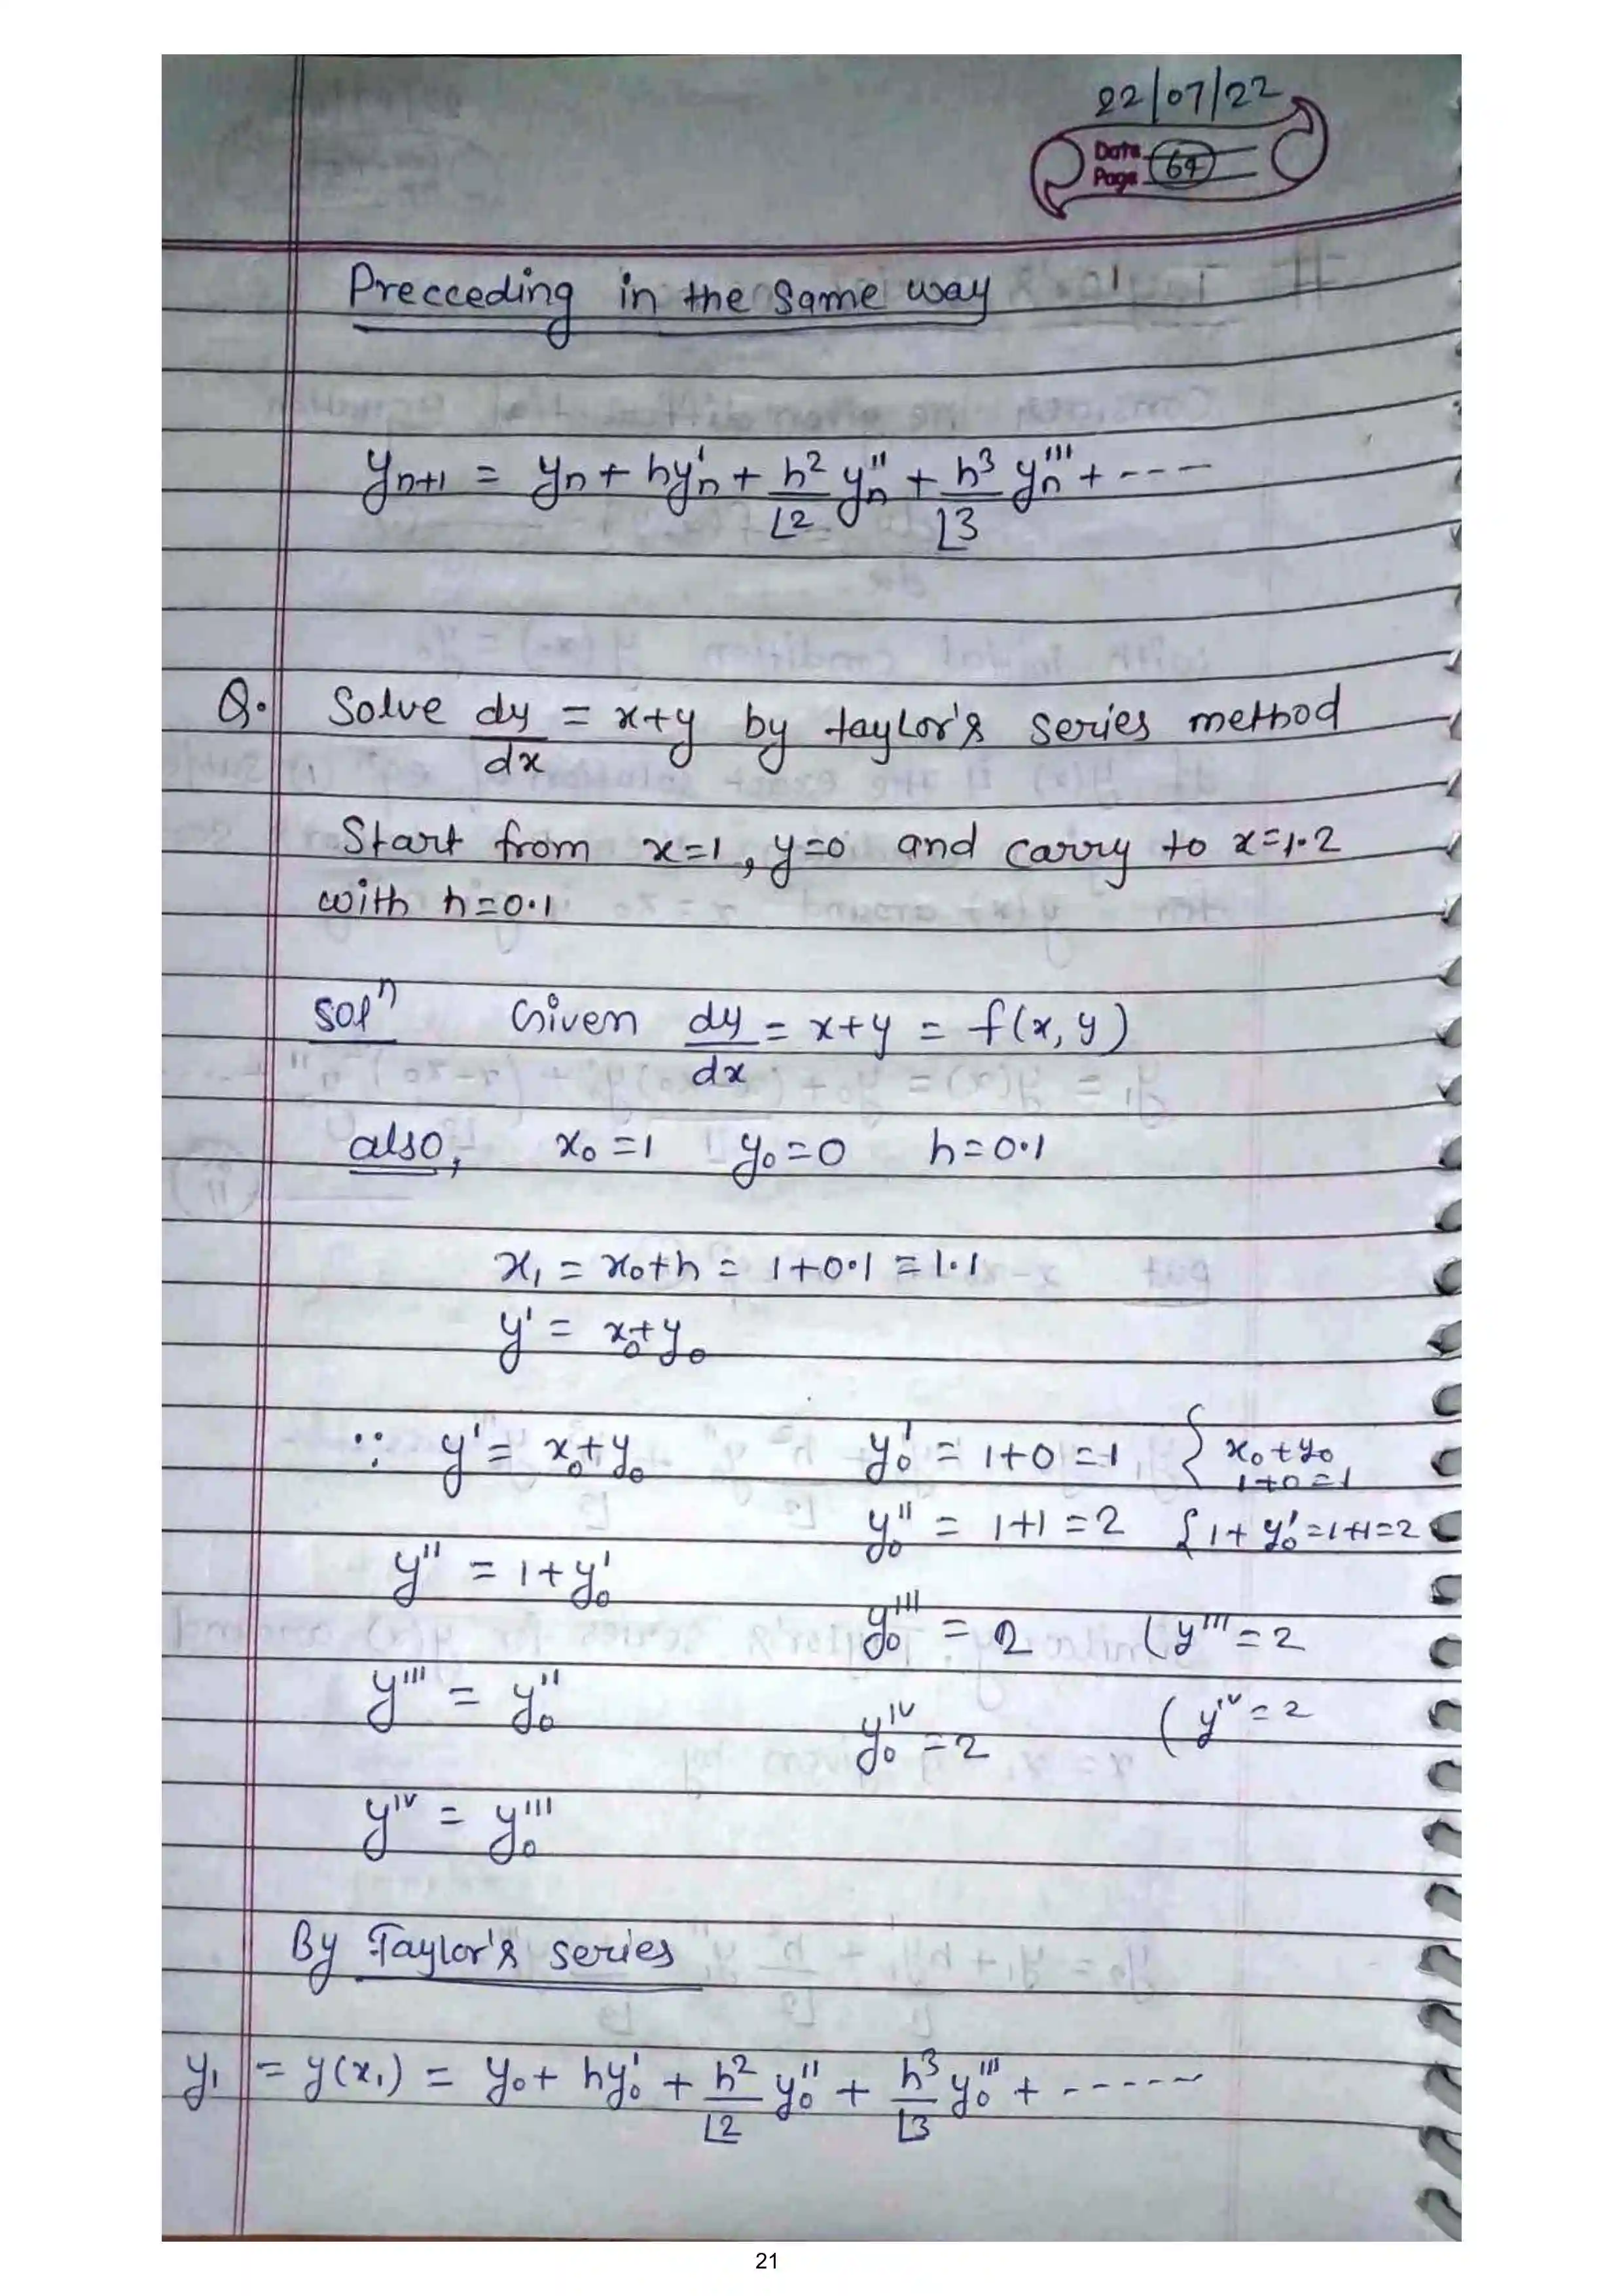 22/07/22
Date
Page 67
Precceding in the same way
yn+1 = yn + hy'n + h²/⌊2 y''n + h³/⌊3 y'''n + ----
Q. Solve dy/dx = x+y by taylor's series method
Start from x=1, y=0 and carry to x=1.2
with h=0.1
solⁿ Given dy/dx = x+y = f(x, y)
also, x₀=1 y₀=0 h=0.1
x₁ = x₀+h = 1+0.1 = 1.1
y' = x₀+y₀
∵ y' = x₀+y₀ y₀' = 1+0 = 1 { x₀+y₀
1+0=1
y₀'' = 1+1 = 2 { 1+y₀' = 1+1=2
y'' = 1+y₀'
y₀''' = 2 (y''' = 2
y''' = y₀''
y₀ⁱᵛ = 2 (yⁱᵛ = 2
yⁱᵛ = y₀'''
By Taylor's series
y₁ = y(x₁) = y₀ + hy₀' + h²/⌊2 y₀'' + h³/⌊3 y₀''' + -----
21